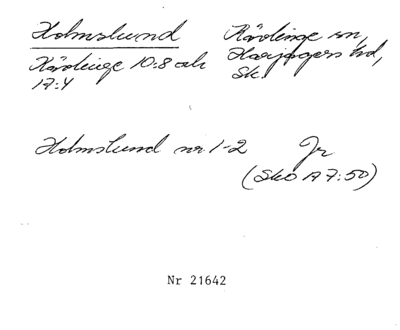 Holmslund
Kävlinge sn,
Harjagers hd,
Sk.
Kävlinge 10:8 och
17:4
Holmslund nr 1-2 Jr
(SkO A 7:50)
Nr 21642